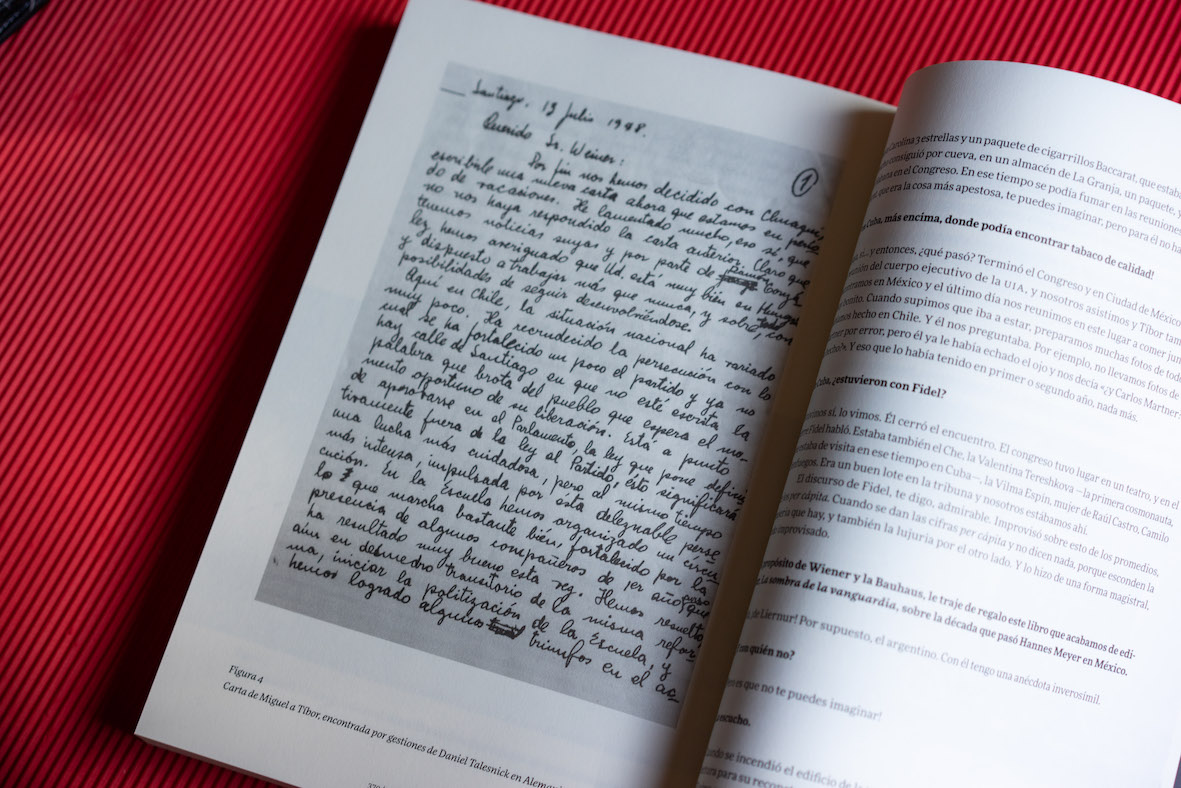 Santiago, 19 Julio 1948.
Querido Sr. Weiner:
①
Por fin nos hemos decidido con Chuaqui,
escribirle una nueva carta ahora que estamos en perío-
do de vacasiones. He lamentado mucho, eso sí, que
no nos haya respondido la carta anterior. Claro que
tenemos noticias suyas y por parte de Ramón Cough
ley hemos averiguado que Ud. está muy bien en Hungría
y dispuesto a trabajar más que nunca, y sobre todo, con
posibilidades de seguir desenvolviéndose.
Aquí en Chile, la situación nacional ha variado
muy poco. Ha recrudecido la persecusión con lo
cual se ha fortalecido un poco el partido y ya no
hay calle de Santiago en que no esté escrita, la
palabra que brota del pueblo que espera el mo-
mento oportuno de su liberación. Está a punto
de aprobarse en el Parlamento, la ley que pone defini
tivamente fuera de la ley al Partido, ésto significará
una lucha más cuidadosa, pero al mismo tiempo
más intensa, impulsada por ésta deleznable perse
cución. En la Escuela hemos organizado un círcu-
lo que marcha bastante bien, fortalecido por la
presencia de algunos compañeros de 1er año, que
ha resultado muy bueno esta vez. Hemos resuelto
aún en desmedro transitorio de la misma refor-
ma, iniciar la politización de la Escuela, y
hemos logrado algunos triunfos en el ac-
Figura 4
Carta de Miguel a Tibor, encontrada por gestiones de Daniel Talesnick en
Carolina 3 estrellas y un paquete de cigarrillos Baccarat, que
consiguió por cueva, en un almacén de La Granja, un paquete, y
en el Congreso. En ese tiempo se podía fumar en las reuniones
que era la cosa más apestosa, te puedes imaginar, pero para él no
Cuba, más encima, donde podía encontrar tabaco de calidad!
y entonces, ¿qué pasó? Terminó el Congreso y en Ciudad de México
del cuerpo ejecutivo de la UIA, y nosotros asistimos y Tibor
en México y el último día nos reunimos en este lugar a comer
bonito. Cuando supimos que iba a estar, preparamos muchas fotos de
hecho en Chile. Y él nos preguntaba. Por ejemplo, no llevamos fotos de
por error, pero él ya le había echado el ojo y nos decía «¿y Carlos Martner
Y eso que lo había tenido en primer o segundo año, nada más.
Cuba, ¿estuvieron con Fidel?
sí, lo vimos. Él cerró el encuentro. El congreso tuvo lugar en un teatro, y en el
Fidel habló. Estaba también el Che, la Valentina Tereshkova –la primera cosmonauta,
estaba de visita en ese tiempo en Cuba–, la Vilma Espín, mujer de Raúl Castro, Camilo
Era un buen lote en la tribuna y nosotros estábamos ahí.
El discurso de Fidel, te digo, admirable. Improvisó sobre esto de los promedios,
per cápita. Cuando se dan las cifras per cápita y no dicen nada, porque esconden la
que hay, y también la lujuria por el otro lado. Y lo hizo de una forma magistral,
improvisado.
propósito de Wiener y la Bauhaus, le traje de regalo este libro que acabamos de edi-
La sombra de la vanguardia, sobre la década que pasó Hannes Meyer en México.
de Liernur! Por supuesto, el argentino. Con él tengo una anécdota inverosímil.
quién no?
es que no te puedes imaginar!
se incendió el edificio de
para su